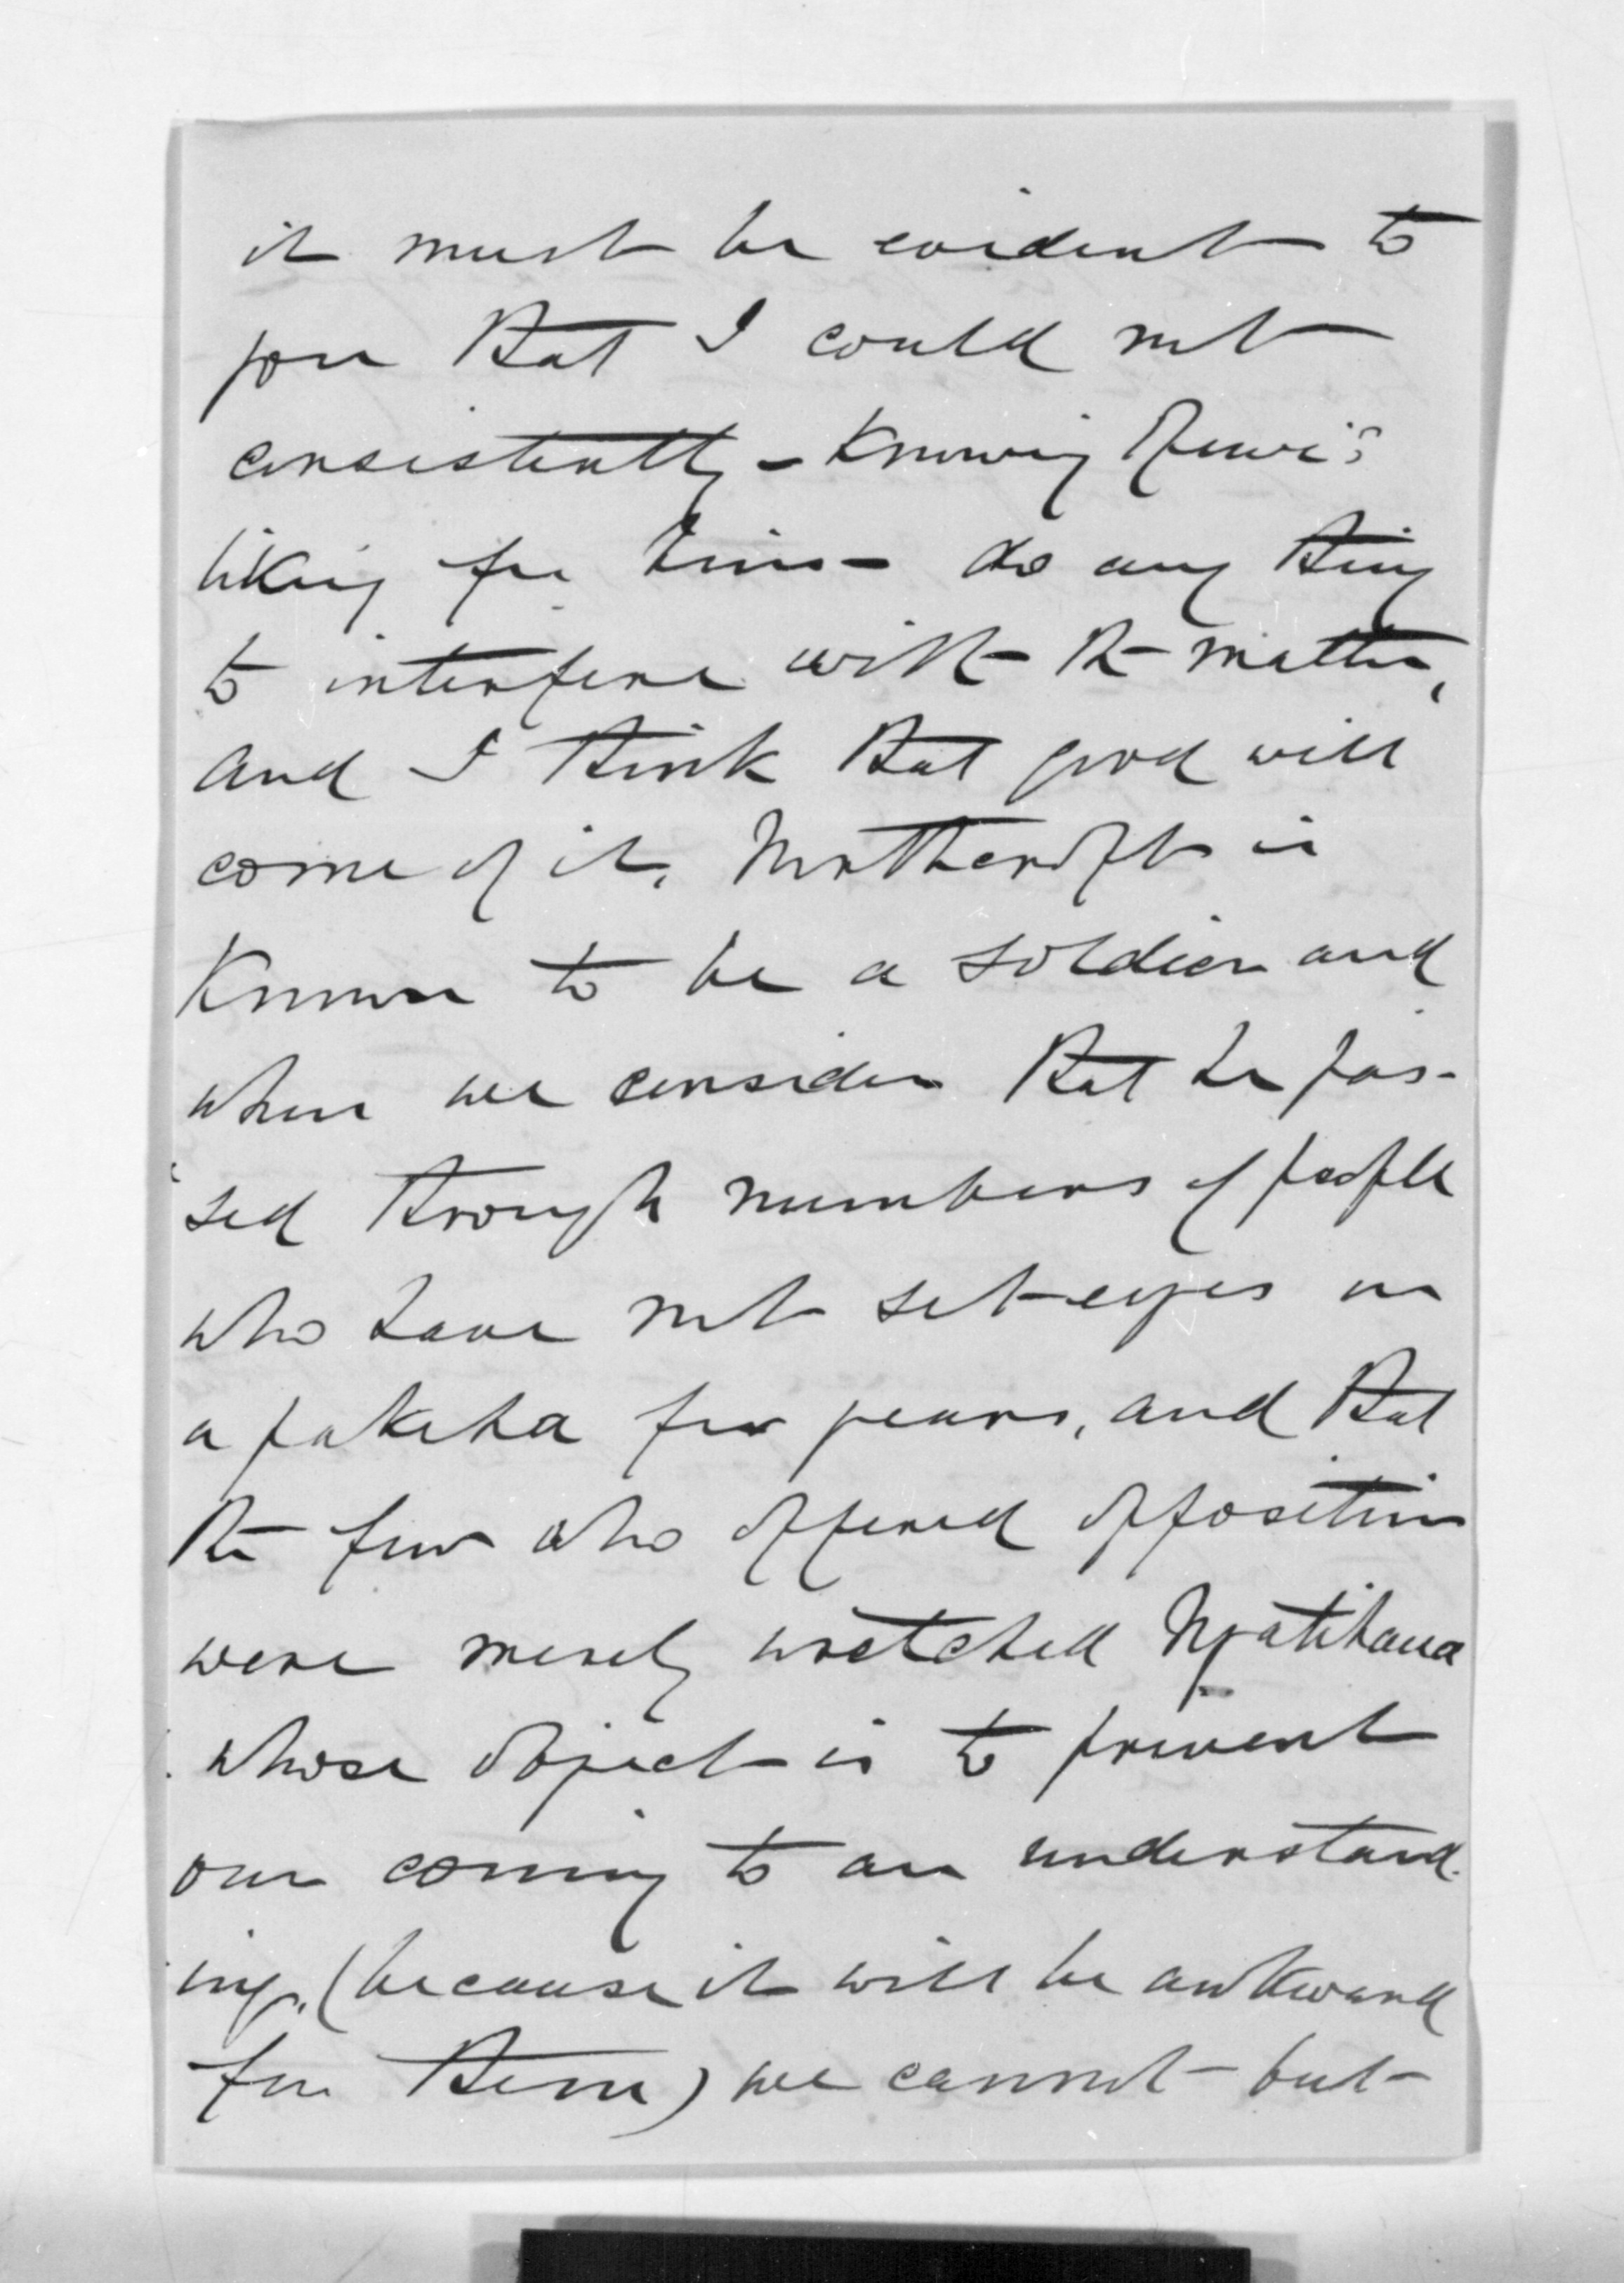 it must be evident to
you that I could not
consistently - knowing Rewi's
liking for him - do any thing
to interfere with the matter,
and I think that good will
come of it. Northcroft is
known to be a soldier and
when we consider that he pas-
sed through numbers of people
who have not set eyes on
a pakeha for years, and that
the few who offered opposition
were merely wretched Ngatihaua
whose object is to prevent
our coming to an understand-
ing. (because it will be awkward
for them) we cannot but